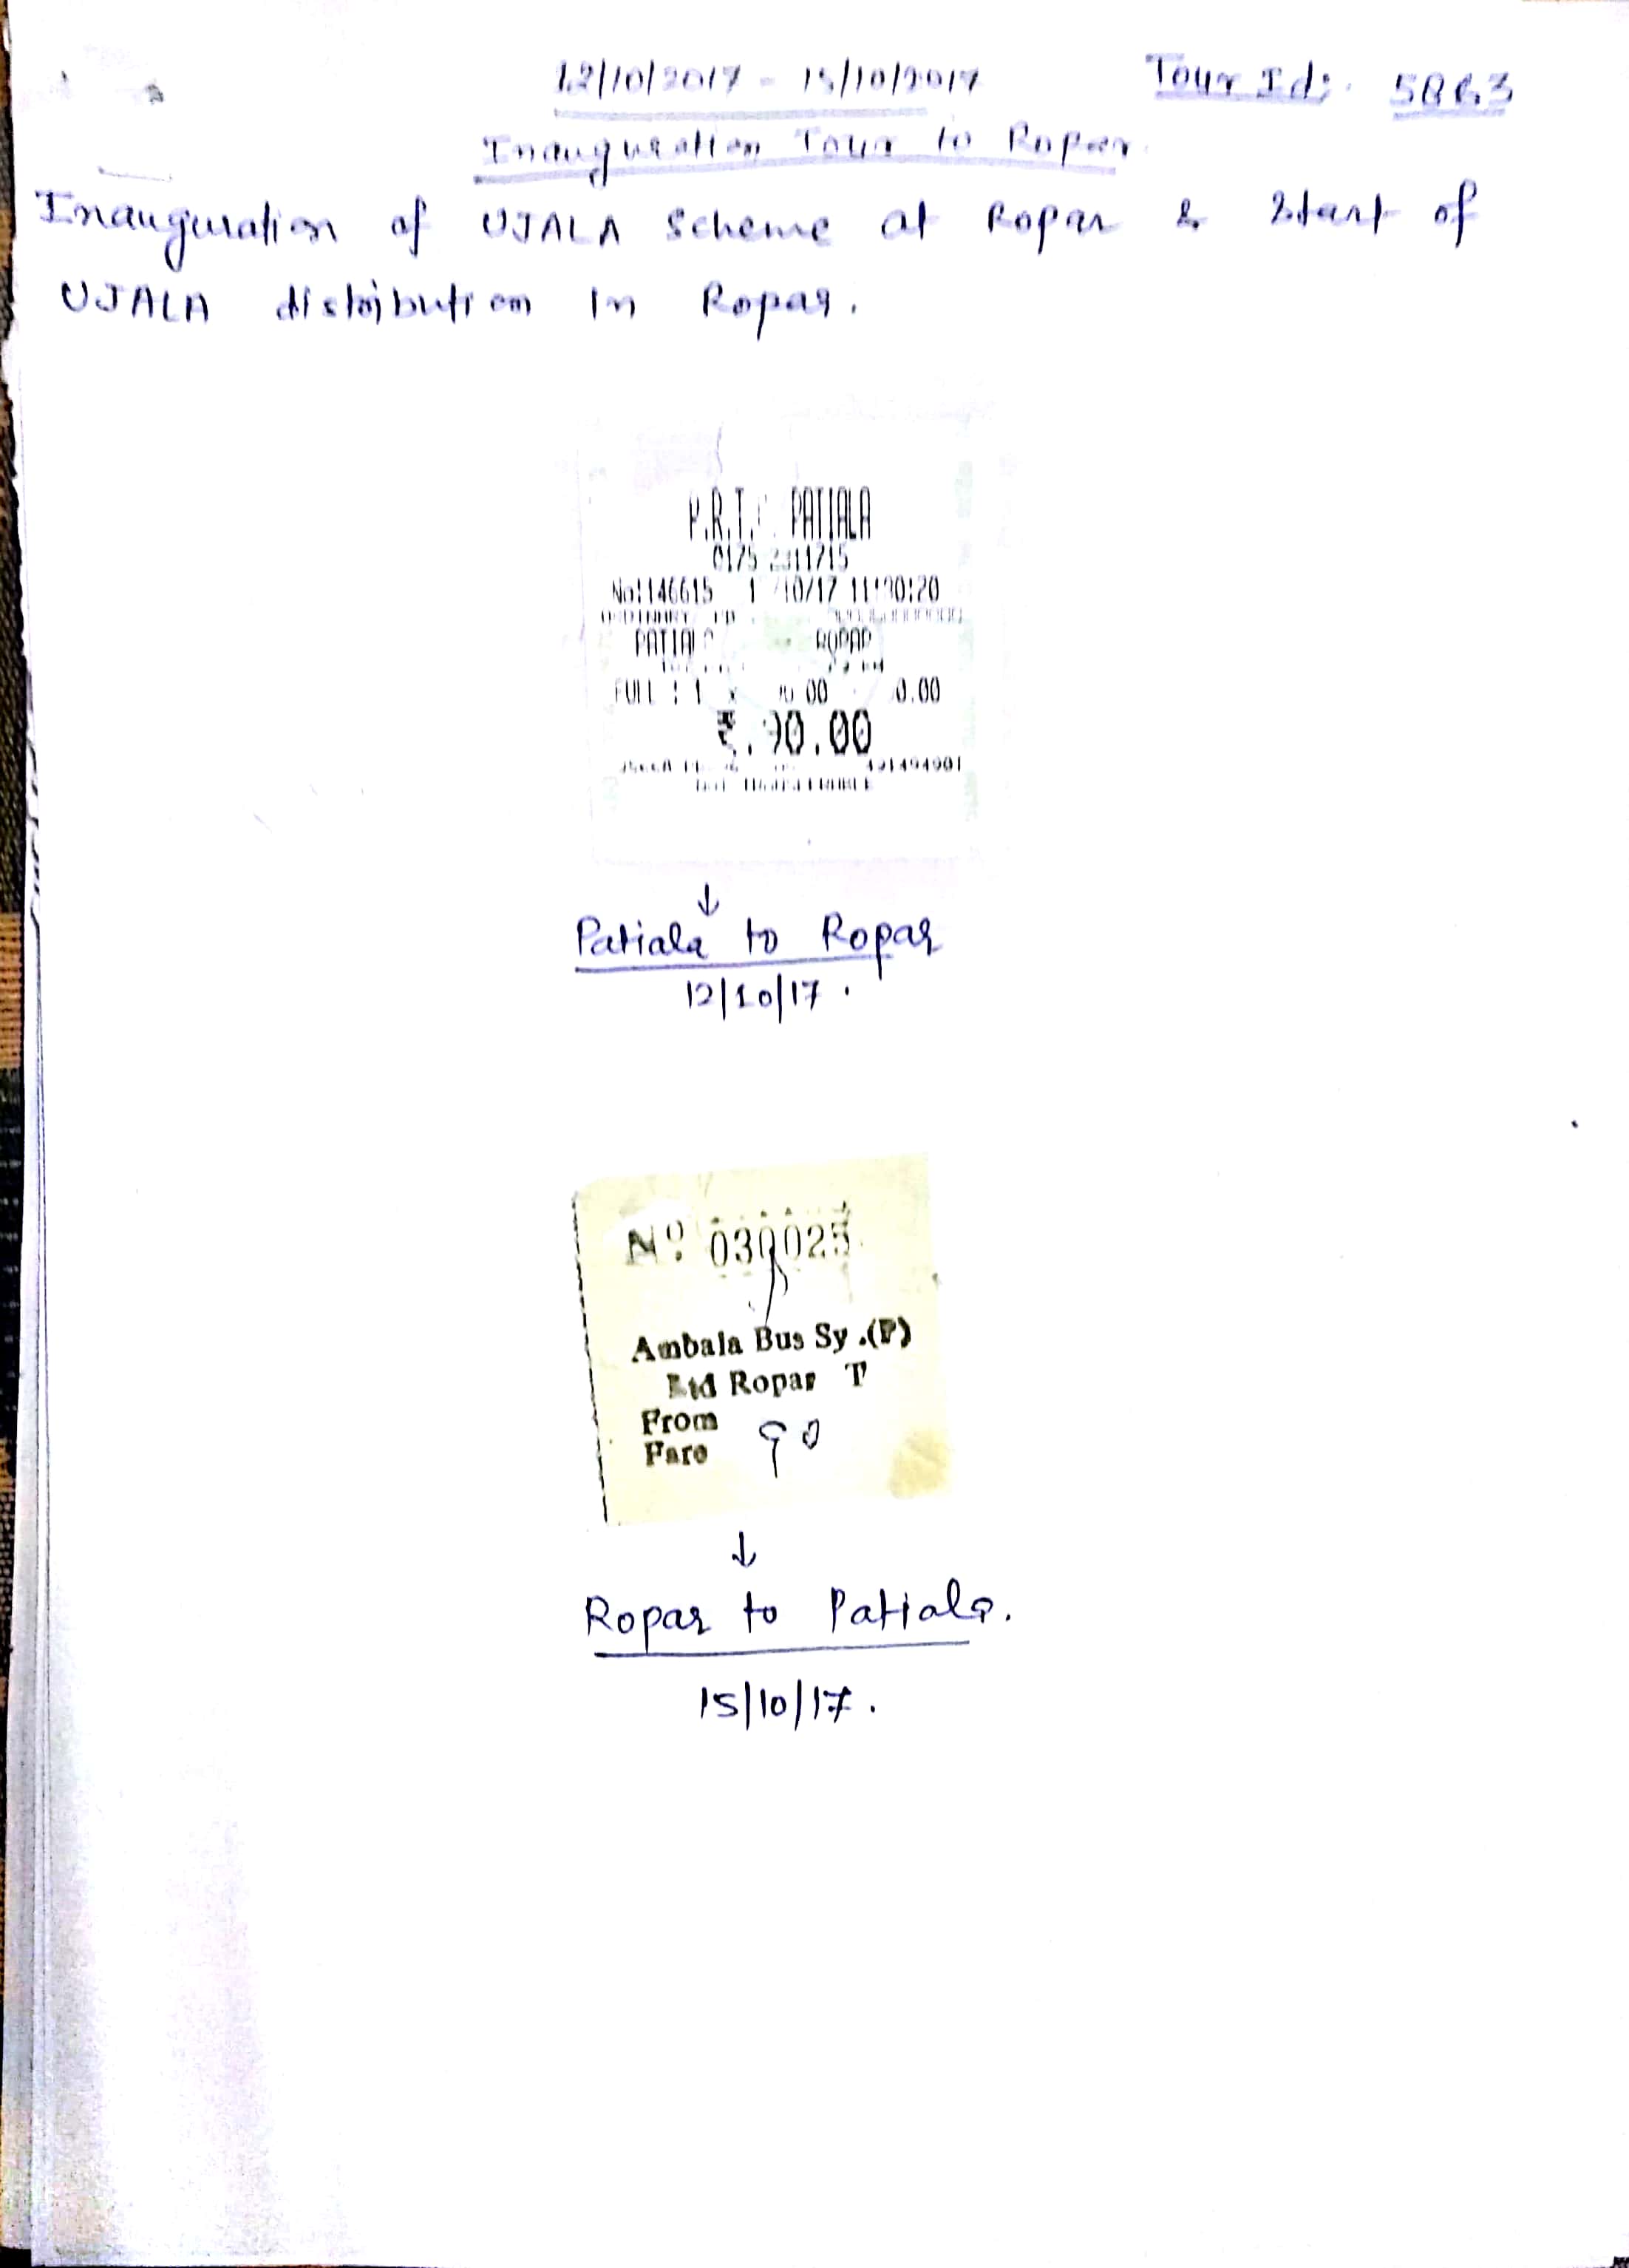 12/10/2017 - 15/10/2017 Tour Id:
Inauguration Tour to Ropar
Inauguration of UJALA Scheme at Ropar & Start of
UJALA distribution in Ropar.
PATIALA
No:146615
ROPAR
FULL : 1
₹.90.00
↓
Patiala to Ropar
12/10/17.
No. 030025
Ambala Bus Sy.(P)
Ltd Ropar T
From
Fare 90
↓
Ropar to Patiala.
15/10/17.